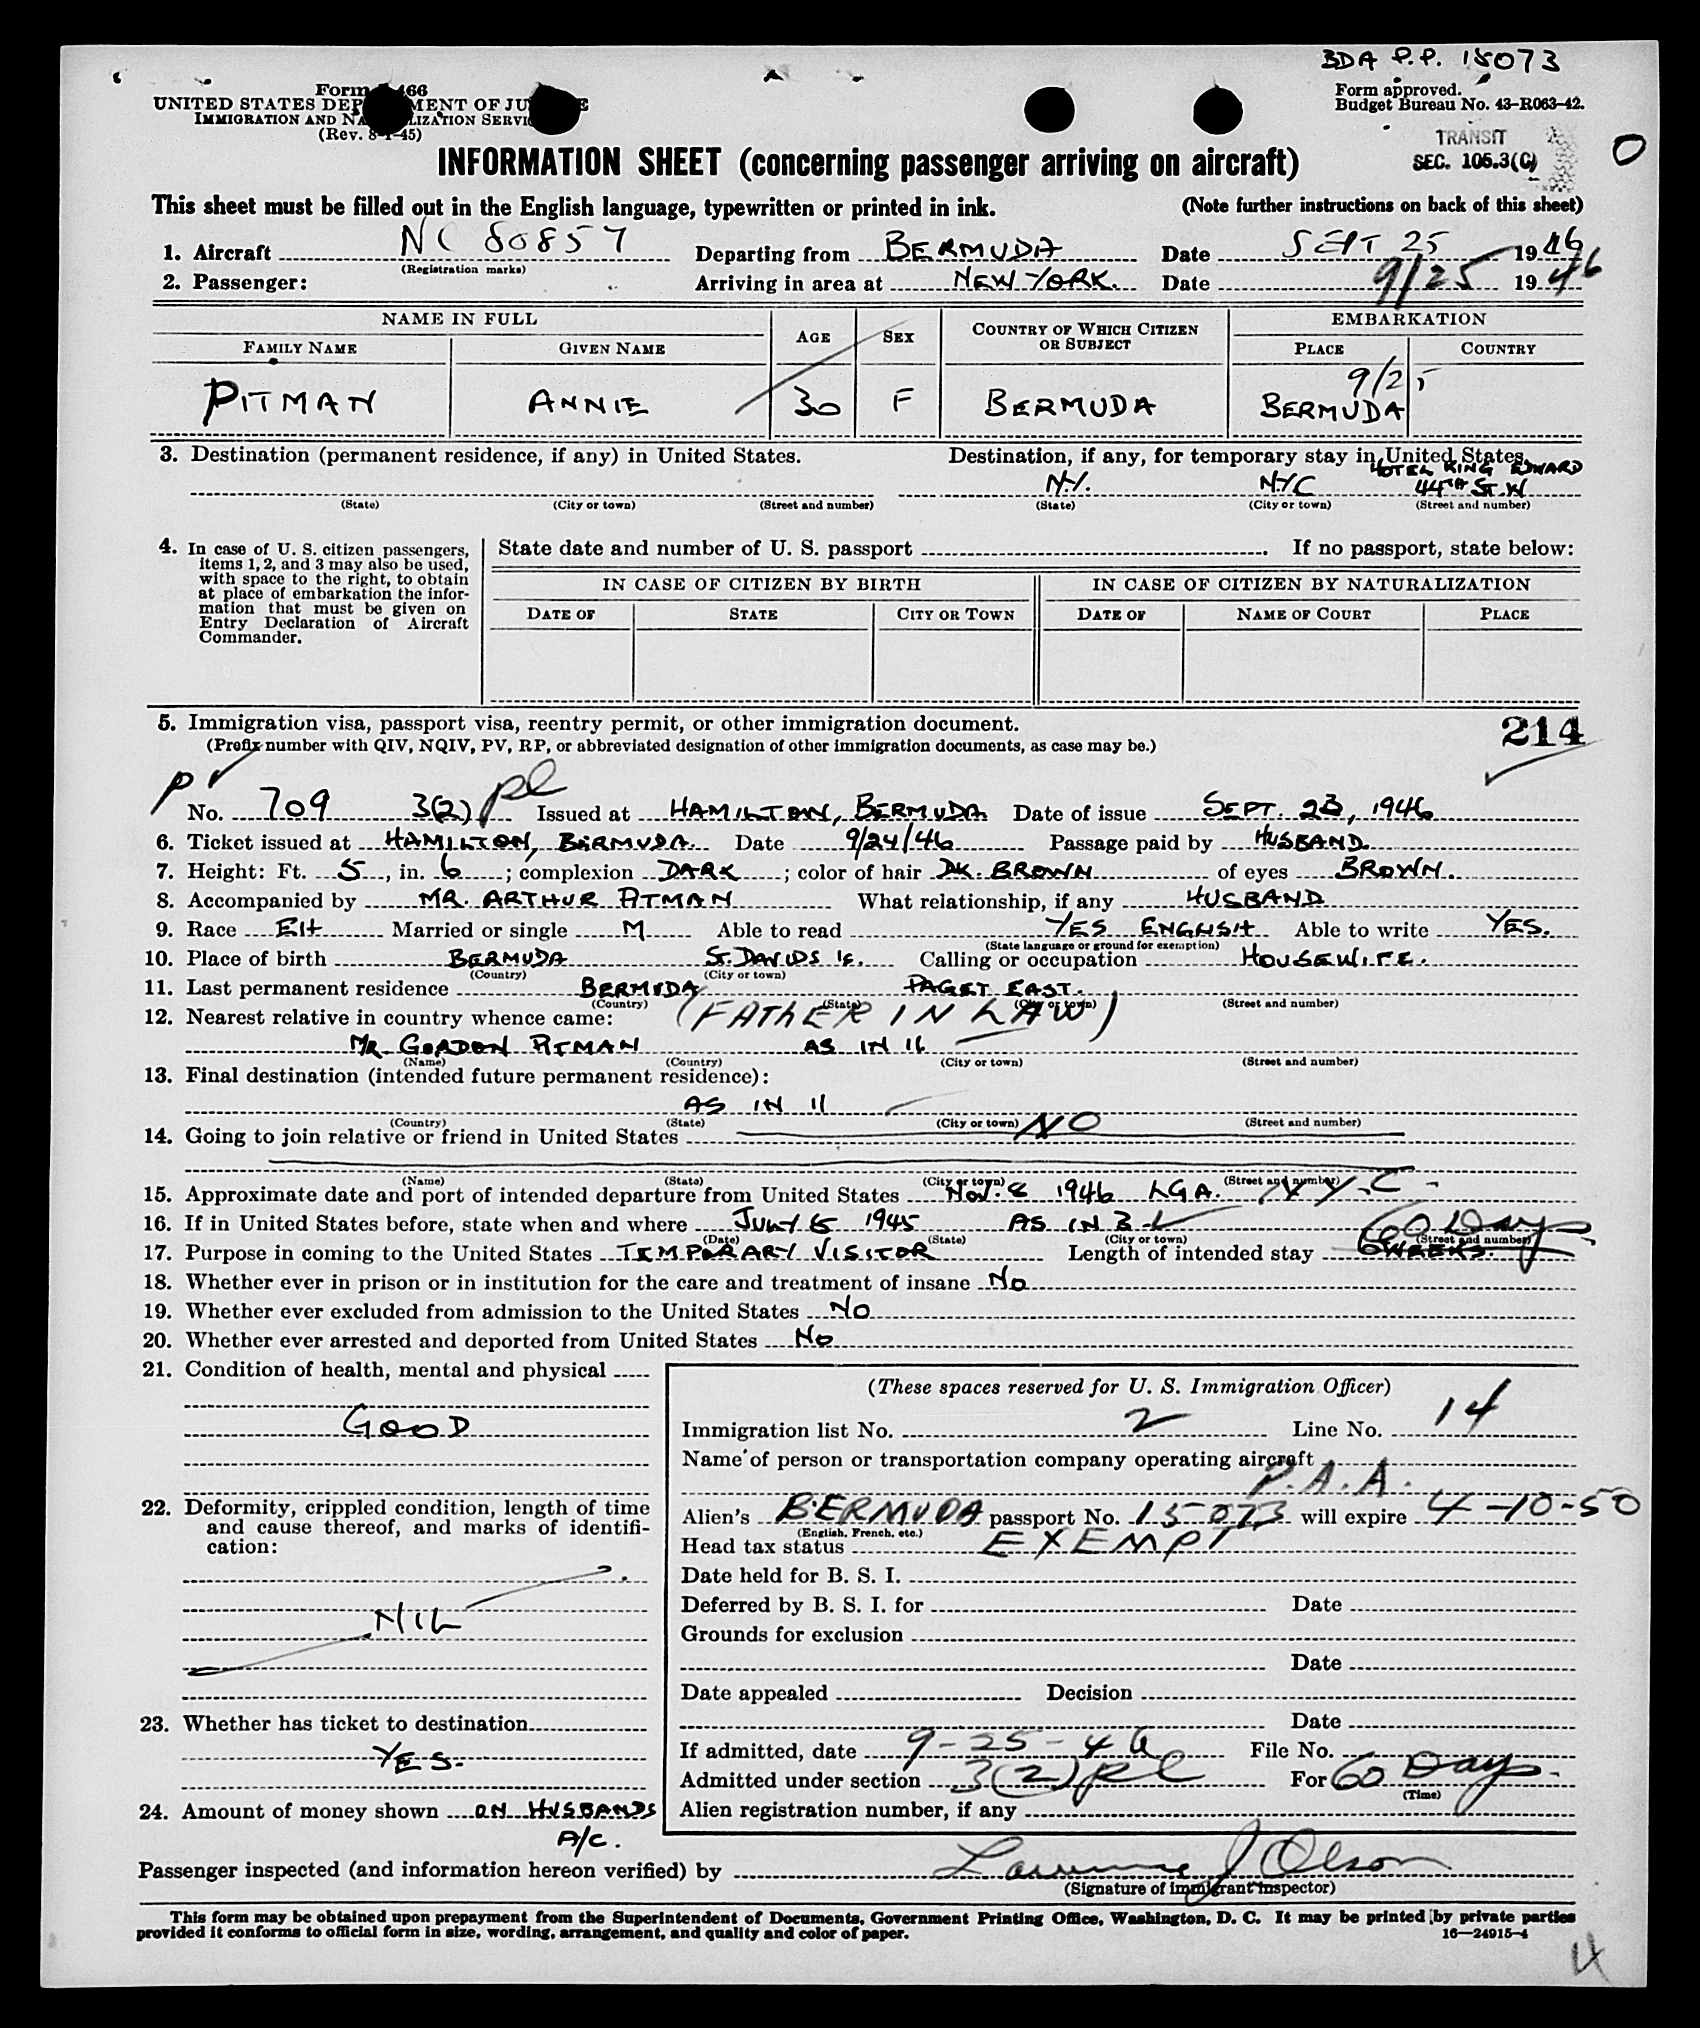 BDA P.P. 15073
Form 466
UNITED STATES DEPARTMENT OF JUSTICE
IMMIGRATION AND NATURALIZATION SERVICE
(Rev. 8-1-45)
Form approved.
Budget Bureau No. 43-R063-42.
TRANSIT
SEC. 105.3(C)
O
INFORMATION SHEET (concerning passenger arriving on aircraft)
This sheet must be filled out in the English language, typewritten or printed in ink. (Note further instructions on back of this sheet)
1. Aircraft NC 80857 Departing from BERMUDA Date SEPT 25 1946
(Registration marks)
2. Passenger: Arriving in area at NEW YORK. Date 9/25 1946
NAME IN FULL AGE SEX COUNTRY OF WHICH CITIZEN OR SUBJECT EMBARKATION
FAMILY NAME GIVEN NAME PLACE COUNTRY
9/25
PITMAN ANNIE 30 F BERMUDA BERMUDA
3. Destination (permanent residence, if any) in United States. Destination, if any, for temporary stay in United States.
HOTEL KING EDWARD
N.Y. NYC 44TH ST. W
(State) (City or town) (Street and number) (State) (City or town) (Street and number)
4. In case of U. S. citizen passengers, items 1, 2, and 3 may also be used, with space to the right, to obtain at place of embarkation the information that must be given on Entry Declaration of Aircraft Commander.
State date and number of U. S. passport . If no passport, state below:
IN CASE OF CITIZEN BY BIRTH IN CASE OF CITIZEN BY NATURALIZATION
DATE OF STATE CITY OR TOWN DATE OF NAME OF COURT PLACE
5. Immigration visa, passport visa, reentry permit, or other immigration document.
214
(Prefix number with QIV, NQIV, PV, RP, or abbreviated designation of other immigration documents, as case may be.)
PV
No. 709 3(2) pl Issued at HAMILTON, BERMUDA Date of issue SEPT. 23, 1946
6. Ticket issued at HAMILTON, BERMUDA. Date 9/24/46 Passage paid by HUSBAND
7. Height: Ft. 5, in. 6; complexion DARK; color of hair DK. BROWN of eyes BROWN.
8. Accompanied by MR. ARTHUR PITMAN What relationship, if any HUSBAND
9. Race EH Married or single M Able to read YES ENGLISH Able to write YES.
(State language or ground for exemption)
10. Place of birth BERMUDA ST. DAVIDS IS. Calling or occupation HOUSEWIFE.
(Country) (City or town)
11. Last permanent residence BERMUDA PAGET EAST.
(Country) (State) (City or town) (Street and number)
12. Nearest relative in country whence came: (FATHER IN LAW)
MR. GORDON PITMAN AS IN 11
(Name) (Country) (City or town) (Street and number)
13. Final destination (intended future permanent residence):
AS IN 11
(Country) (State) (City or town) (Street and number)
14. Going to join relative or friend in United States NO
(Name) (State) (City or town) (Street and number)
15. Approximate date and port of intended departure from United States NOV. 8 1946 LGA. N.Y.C.
16. If in United States before, state when and where JULY 5 1945 AS IN 3
(Date) (State) (City or town) (Street and number)
60 Days
17. Purpose in coming to the United States TEMPORARY VISITOR Length of intended stay 6 WEEKS.
18. Whether ever in prison or in institution for the care and treatment of insane NO
19. Whether ever excluded from admission to the United States NO
20. Whether ever arrested and deported from United States NO
21. Condition of health, mental and physical
GOOD
22. Deformity, crippled condition, length of time and cause thereof, and marks of identification:
NIL
23. Whether has ticket to destination
YES.
24. Amount of money shown ON HUSBANDS
A/C.
(These spaces reserved for U. S. Immigration Officer)
Immigration list No. 2 Line No. 14
Name of person or transportation company operating aircraft
P.A.A.
Alien's BERMUDA passport No. 15073 will expire 4-10-50
(English, French, etc.)
Head tax status EXEMPT
Date held for B. S. I.
Deferred by B. S. I. for Date
Grounds for exclusion
Date
Date appealed Decision
Date
If admitted, date 9-25-46 File No.
Admitted under section 3(2) pl For 60 Days
(Time)
Alien registration number, if any
Passenger inspected (and information hereon verified) by Lawrence J Olson
(Signature of immigrant inspector)
This form may be obtained upon prepayment from the Superintendent of Documents, Government Printing Office, Washington, D. C. It may be printed by private parties
provided it conforms to official form in size, wording, arrangement, and quality and color of paper. 16—24915-4
4